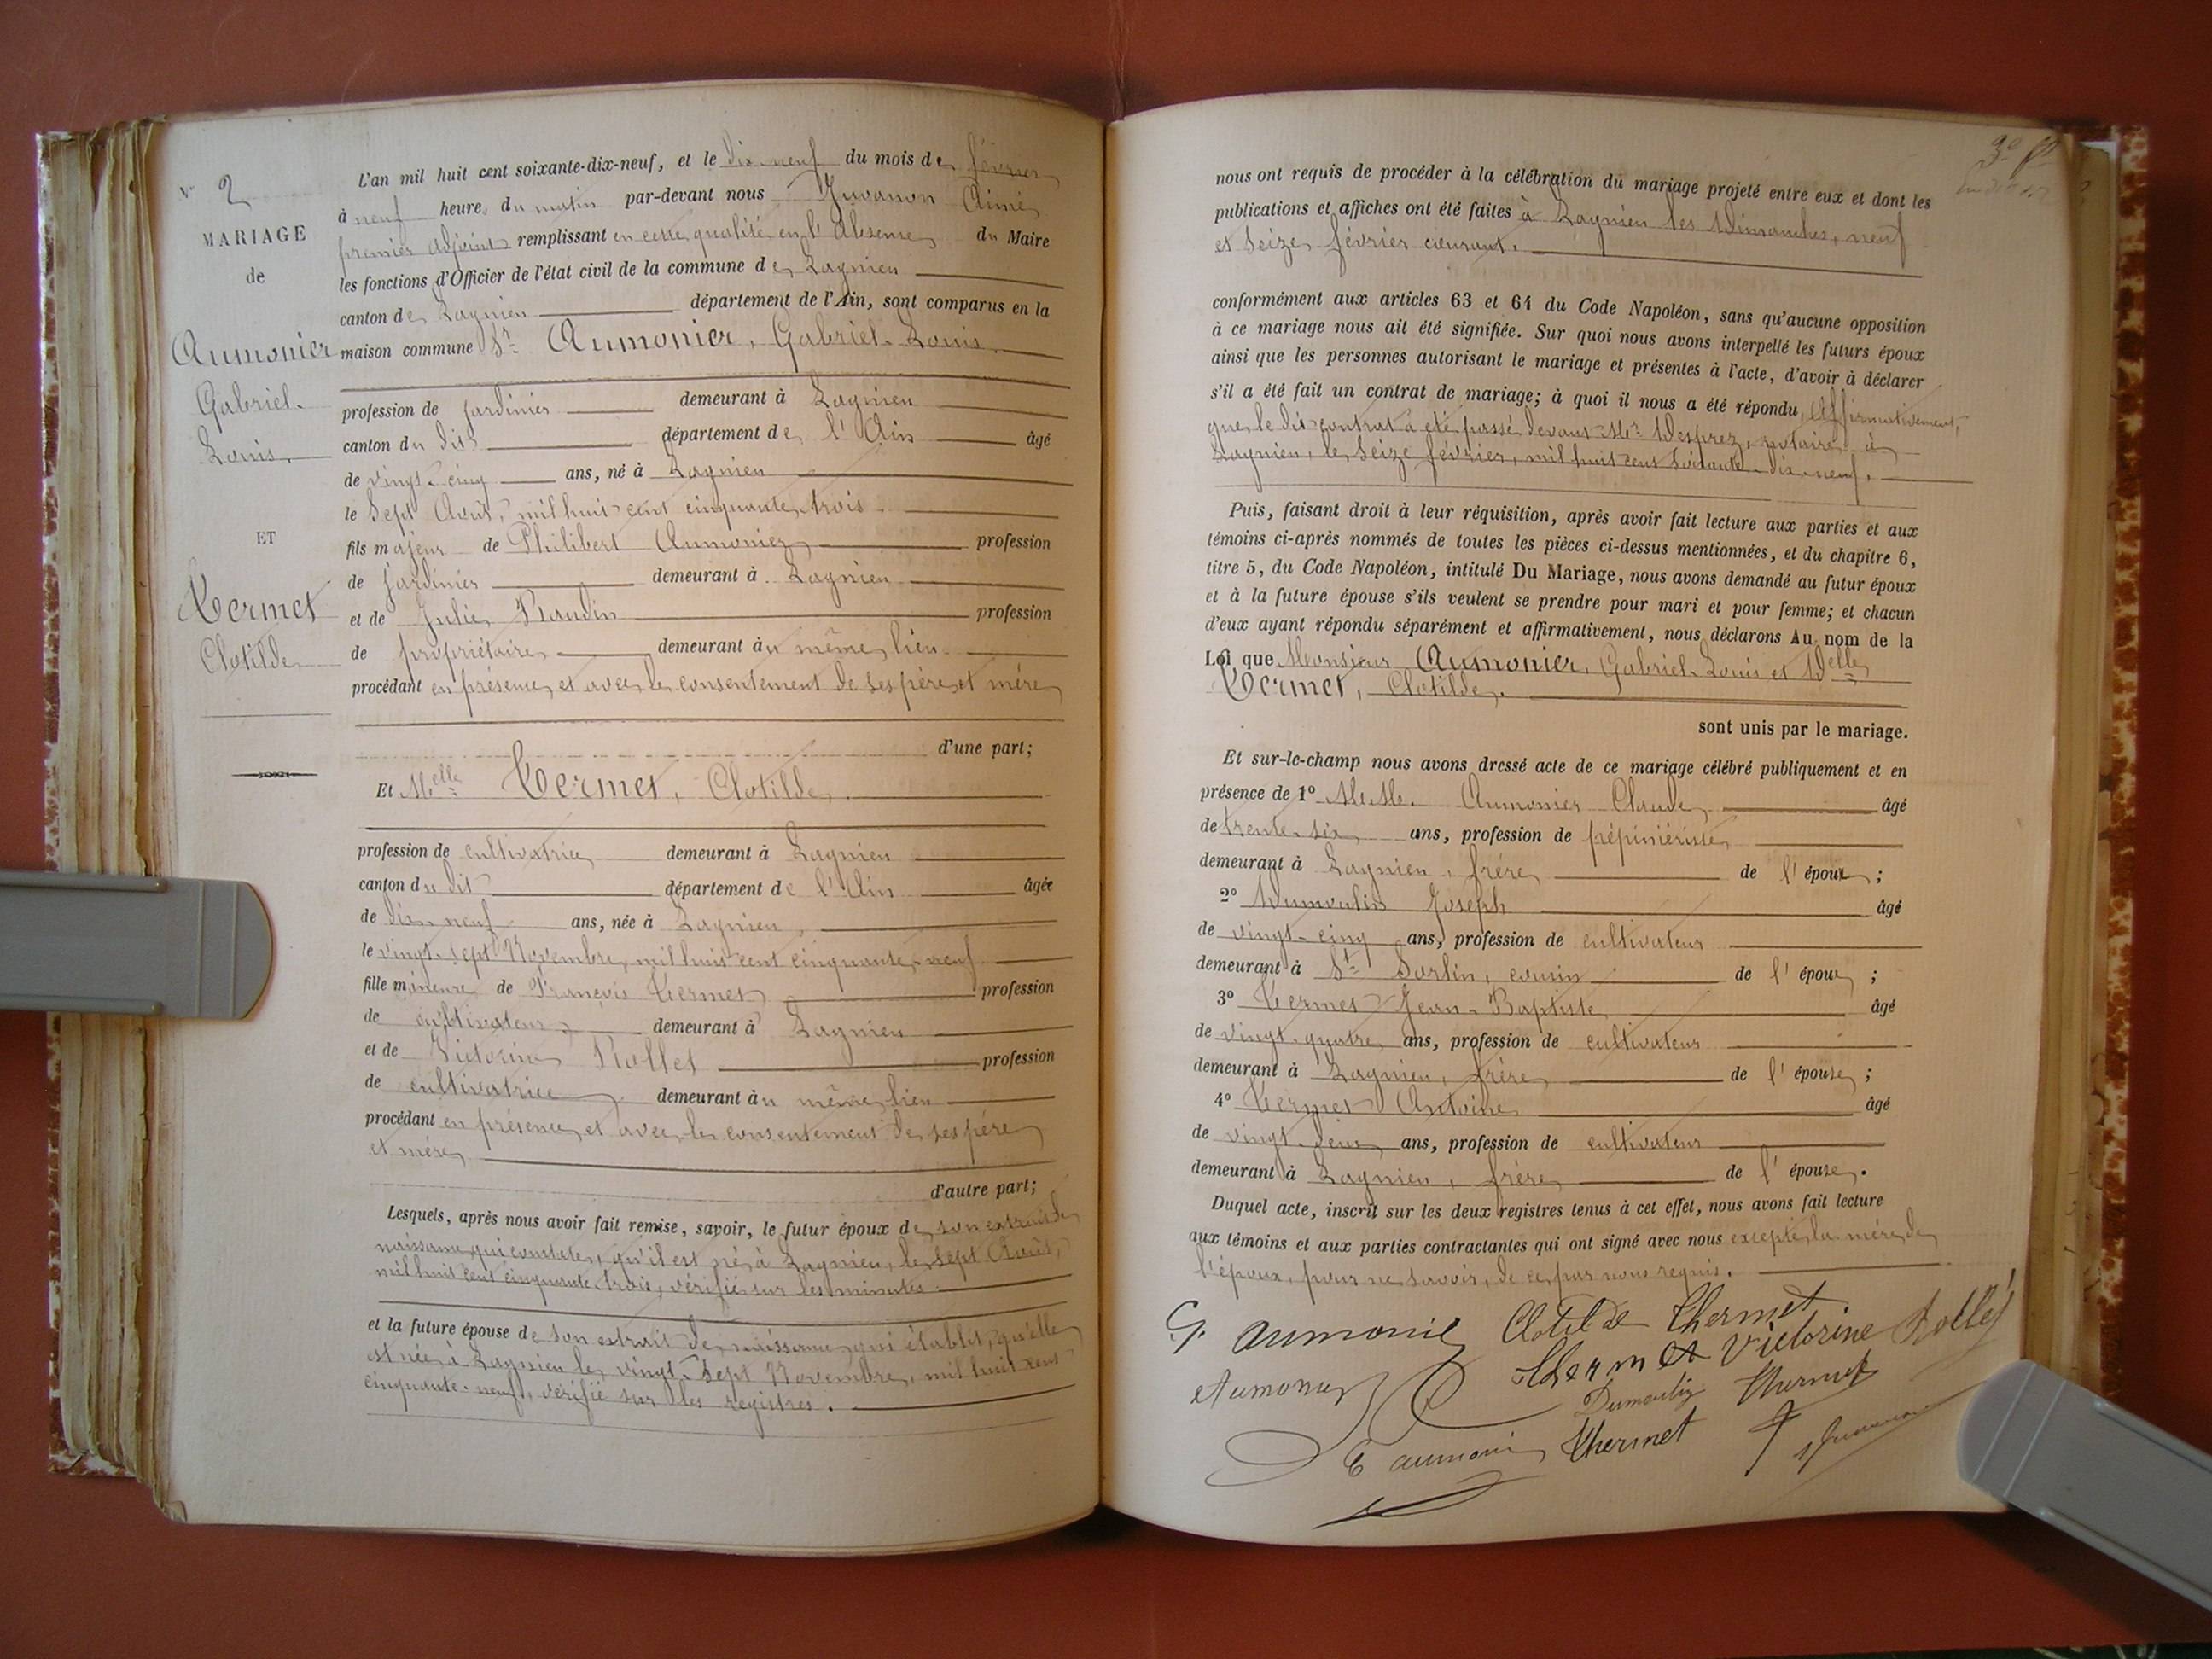 N° 2
MARIAGE
de
Aumonier
Gabriel-
Louis.
ET
Termet
Clotilde
L'an mil huit cent soixante-dix-neuf, et le dix-neuf du mois de février
à neuf heures du matin par-devant nous Juvanon Aimé
premier adjoint remplissant en cette qualité en l'absence du Maire
les fonctions d'Officier de l'état civil de la commune de Lagnieu
canton de Lagnieu département de l'Ain, sont comparus en la
maison commune Sr Aumonier, Gabriel-Louis.
profession de jardinier demeurant à Lagnieu
canton du dit département de l'Ain âgé
de vingt-cinq ans, né à Lagnieu
le sept Août, mil huit cent cinquante trois
fils majeur de Philibert Aumonier profession
de jardinier demeurant à Lagnieu
et de Julie Raudin profession
de propriétaire demeurant au même lieu.
procédant en présence et avec le consentement de ses père et mère
d'une part;
Et Melle Termet, Clotilde.
profession de cultivatrice demeurant à Lagnieu
canton du dit département de l'Ain âgée
de dix-neuf ans, née à Lagnieu,
le vingt-sept Novembre, mil huit cent cinquante-neuf
fille mineure de François Termet profession
de cultivateur demeurant à Lagnieu
et de Victorine Rollet profession
de cultivatrice demeurant au même lieu
procédant en présence et avec le consentement de ses père
et mère
d'autre part;
Lesquels, après nous avoir fait remise, savoir, le futur époux de son extrait de
naissance qui constate, qu'il est né à Lagnieu, le sept Août,
mil huit cent cinquante trois, vérifié sur les minutes.
et la future épouse de son extrait de naissance qui établit, qu'elle
est née à Lagnieu le vingt-sept Novembre, mil huit cent
cinquante-neuf, vérifié sur les registres.
3e ft
nous ont requis de procéder à la célébration du mariage projeté entre eux et dont les
publications et affiches ont été faites à Lagnieu les Dimanches, neuf
et seize février courant.
conformément aux articles 63 et 64 du Code Napoléon, sans qu'aucune opposition
à ce mariage nous ait été signifiée. Sur quoi nous avons interpellé les futurs époux
ainsi que les personnes autorisant le mariage et présentes à l'acte, d'avoir à déclarer
s'il a été fait un contrat de mariage; à quoi il nous a été répondu, affirmativement,
que le dit contrat a été passé devant Me Desprez, notaire à
Lagnieu, le seize février, mil huit cent soixante-dix-neuf.
Puis, faisant droit à leur réquisition, après avoir fait lecture aux parties et aux
témoins ci-après nommés de toutes les pièces ci-dessus mentionnées, et du chapitre 6,
titre 5, du Code Napoléon, intitulé Du Mariage, nous avons demandé au futur époux
et à la future épouse s'ils veulent se prendre pour mari et pour femme; et chacun
d'eux ayant répondu séparément et affirmativement, nous déclarons Au nom de la
Loi que Monsieur Aumonier, Gabriel-Louis et Delle
Termet, Clotilde.
sont unis par le mariage.
Et sur-le-champ nous avons dressé acte de ce mariage célébré publiquement et en
présence de 1° M.M. Aumonier Claude âgé
de trente-six ans, profession de pépiniériste
demeurant à Lagnieu, frère de l'époux;
2° Dumoulin Joseph âgé
de vingt-cinq ans, profession de cultivateur
demeurant à St Sorlin, cousin de l'époux;
3° Termet Jean-Baptiste âgé
de vingt-quatre ans, profession de cultivateur
demeurant à Lagnieu, frère de l'épouse;
4° Termet Antoine âgé
de vingt-deux ans, profession de cultivateur
demeurant à Lagnieu, frère de l'épouse.
Duquel acte, inscrit sur les deux registres tenus à cet effet, nous avons fait lecture
aux témoins et aux parties contractantes qui ont signé avec nous excepté la mère de
l'époux, pour ne savoir, de ce par nous requis.
G. aumonie Clotilde thermet
thermet Victorine Rollet
Aumonier Dumoulin thermet
C aumonie thermet